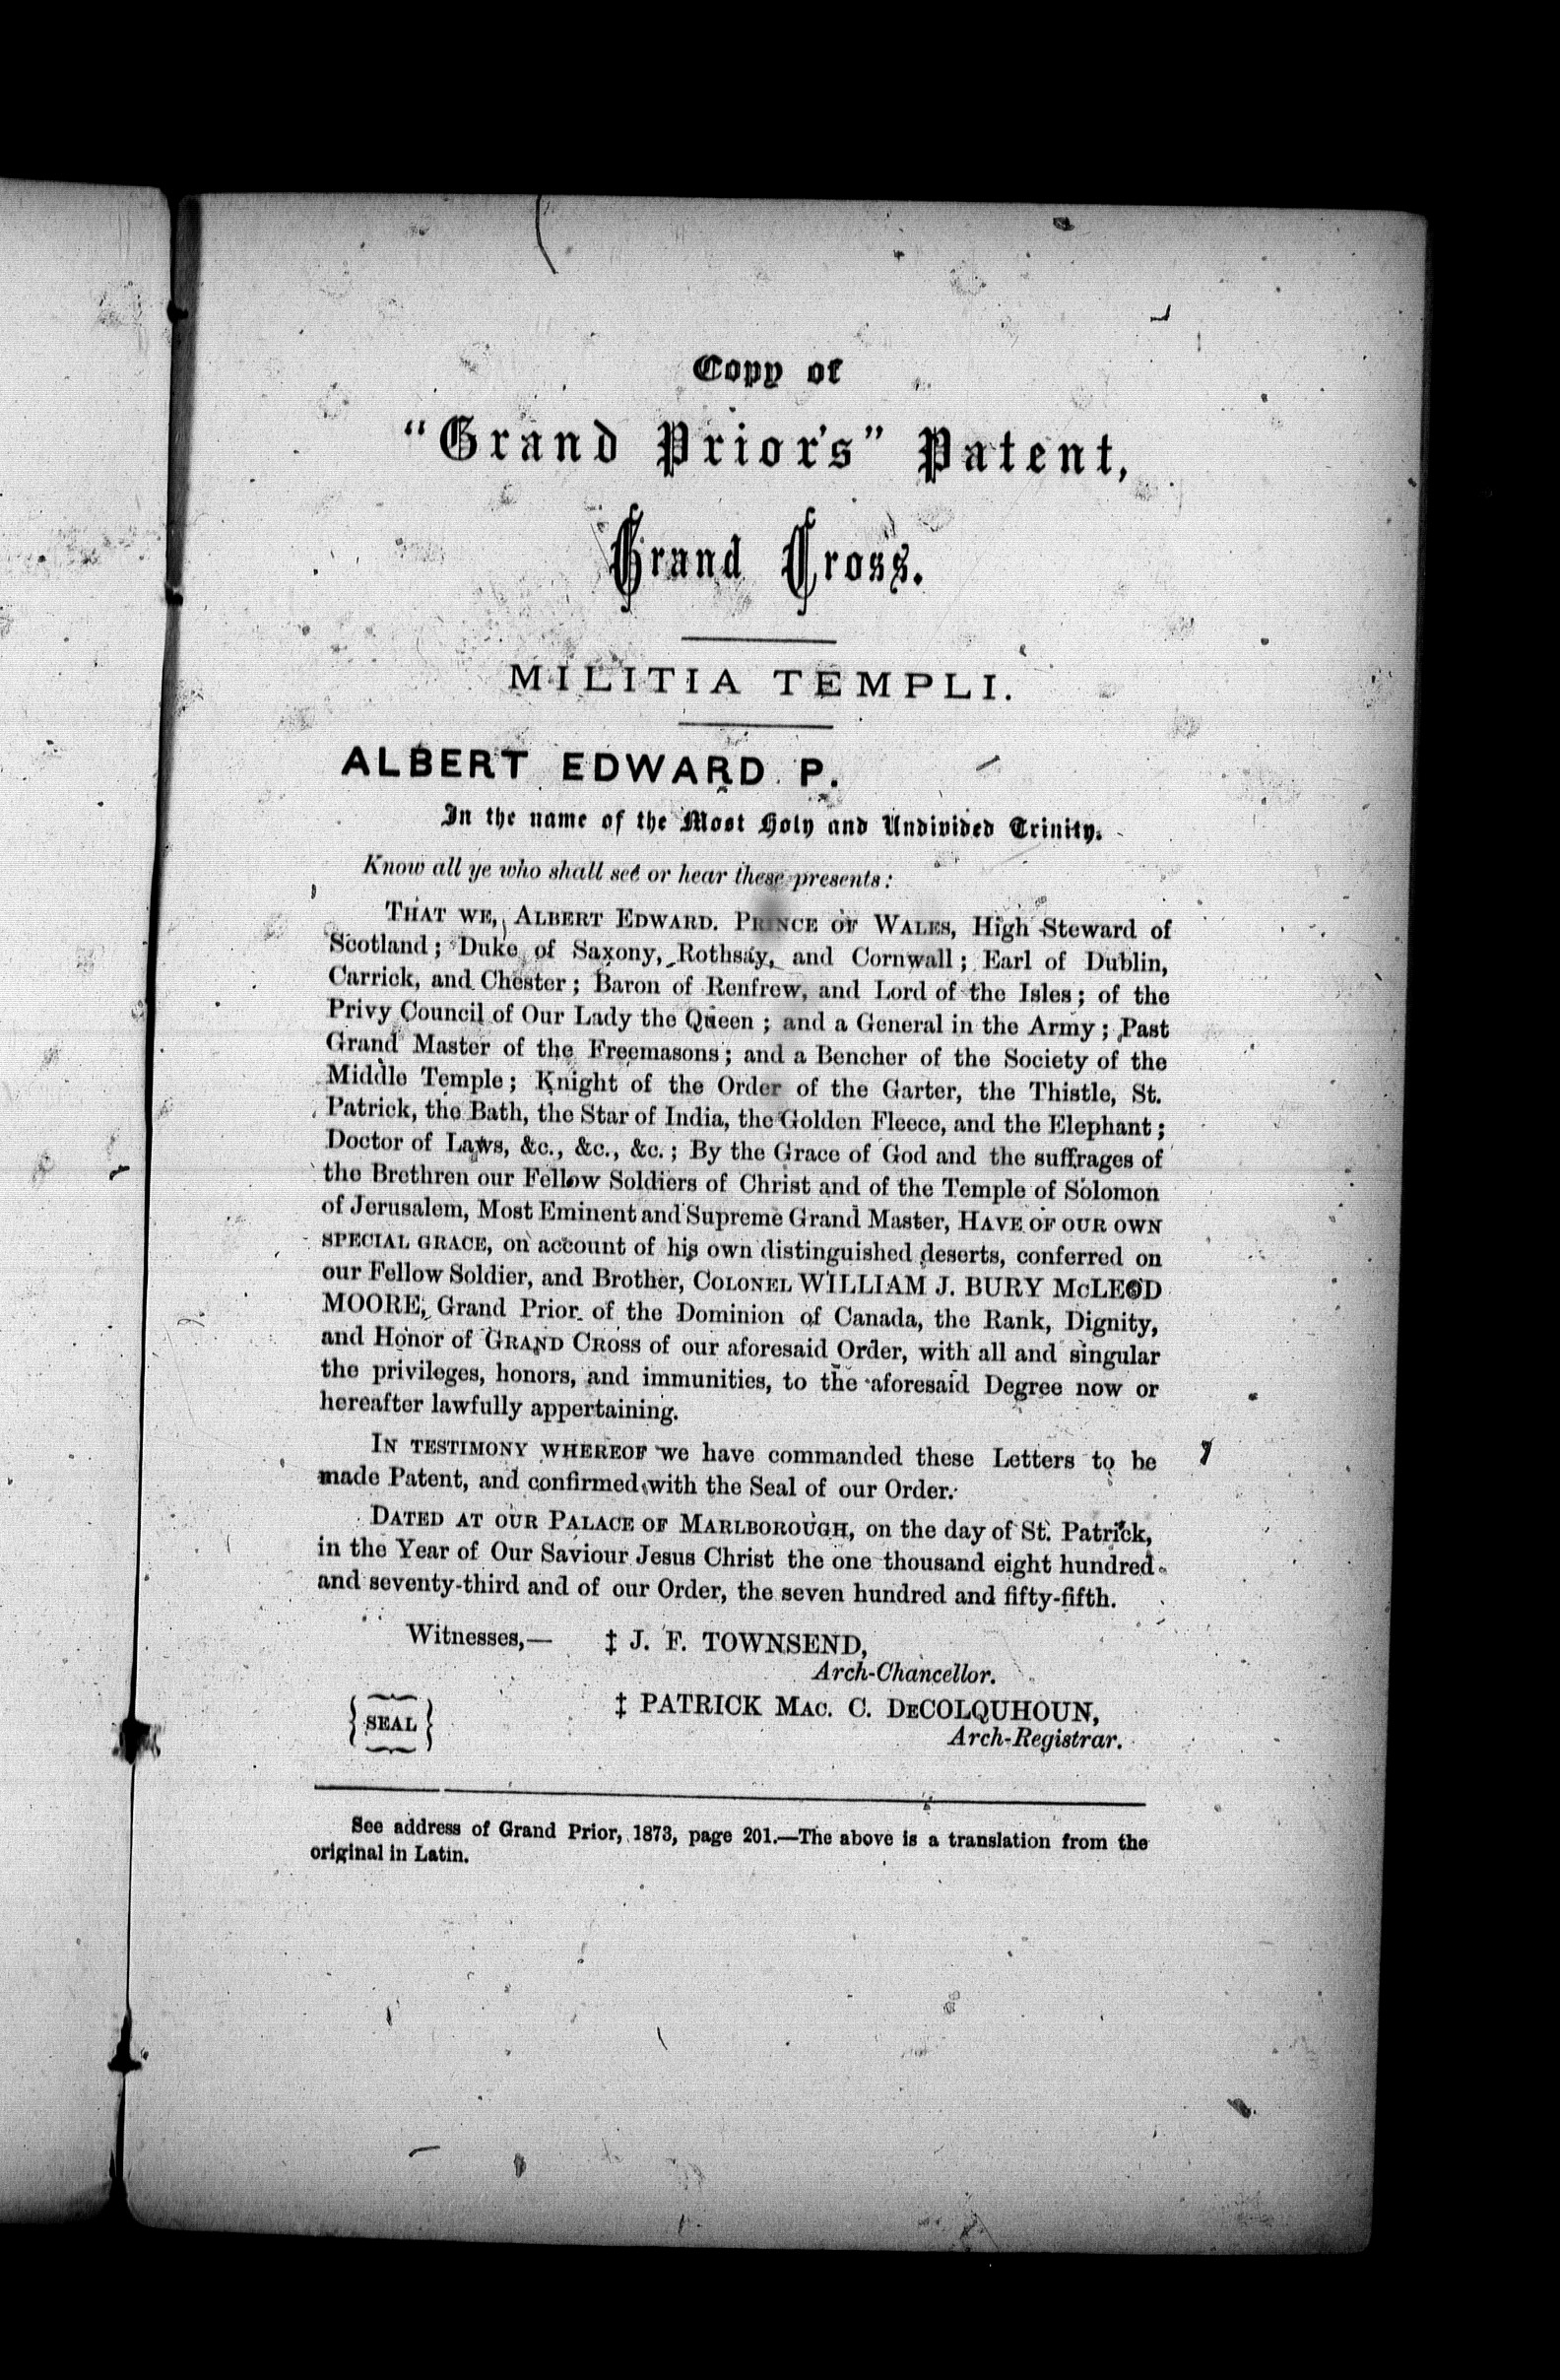 Copy of
"Grand Prior's" Patent,
Grand Cross.
MILITIA TEMPLI.
ALBERT EDWARD P.
In the name of the Most Holy and Undivided Trinity.
Know all ye who shall see or hear these presents:
THAT WE, ALBERT EDWARD. PRINCE OF WALES, High Steward of
Scotland; Duke of Saxony, Rothsay, and Cornwall; Earl of Dublin,
Carrick, and Chester; Baron of Renfrew, and Lord of the Isles; of the
Privy Council of Our Lady the Queen; and a General in the Army; Past
Grand Master of the Freemasons; and a Bencher of the Society of the
Middle Temple; Knight of the Order of the Garter, the Thistle, St.
Patrick, the Bath, the Star of India, the Golden Fleece, and the Elephant;
Doctor of Laws, &c., &c., &c.; By the Grace of God and the suffrages of
the Brethren our Fellow Soldiers of Christ and of the Temple of Solomon
of Jerusalem, Most Eminent and Supreme Grand Master, HAVE OF OUR OWN
SPECIAL GRACE, on account of his own distinguished deserts, conferred on
our Fellow Soldier, and Brother, COLONEL WILLIAM J. BURY McLEOD
MOORE, Grand Prior of the Dominion of Canada, the Rank, Dignity,
and Honor of GRAND CROSS of our aforesaid Order, with all and singular
the privileges, honors, and immunities, to the aforesaid Degree now or
hereafter lawfully appertaining.
IN TESTIMONY WHEREOF we have commanded these Letters to be
made Patent, and confirmed with the Seal of our Order.
DATED AT OUR PALACE OF MARLBOROUGH, on the day of St. Patrick,
in the Year of Our Saviour Jesus Christ the one thousand eight hundred
and seventy-third and of our Order, the seven hundred and fifty-fifth.
Witnesses,— ‡ J. F. TOWNSEND,
Arch-Chancellor.
‡ PATRICK MAC. C. DECOLQUHOUN,
{SEAL}
Arch-Registrar.
See address of Grand Prior, 1873, page 201.—The above is a translation from the
original in Latin.